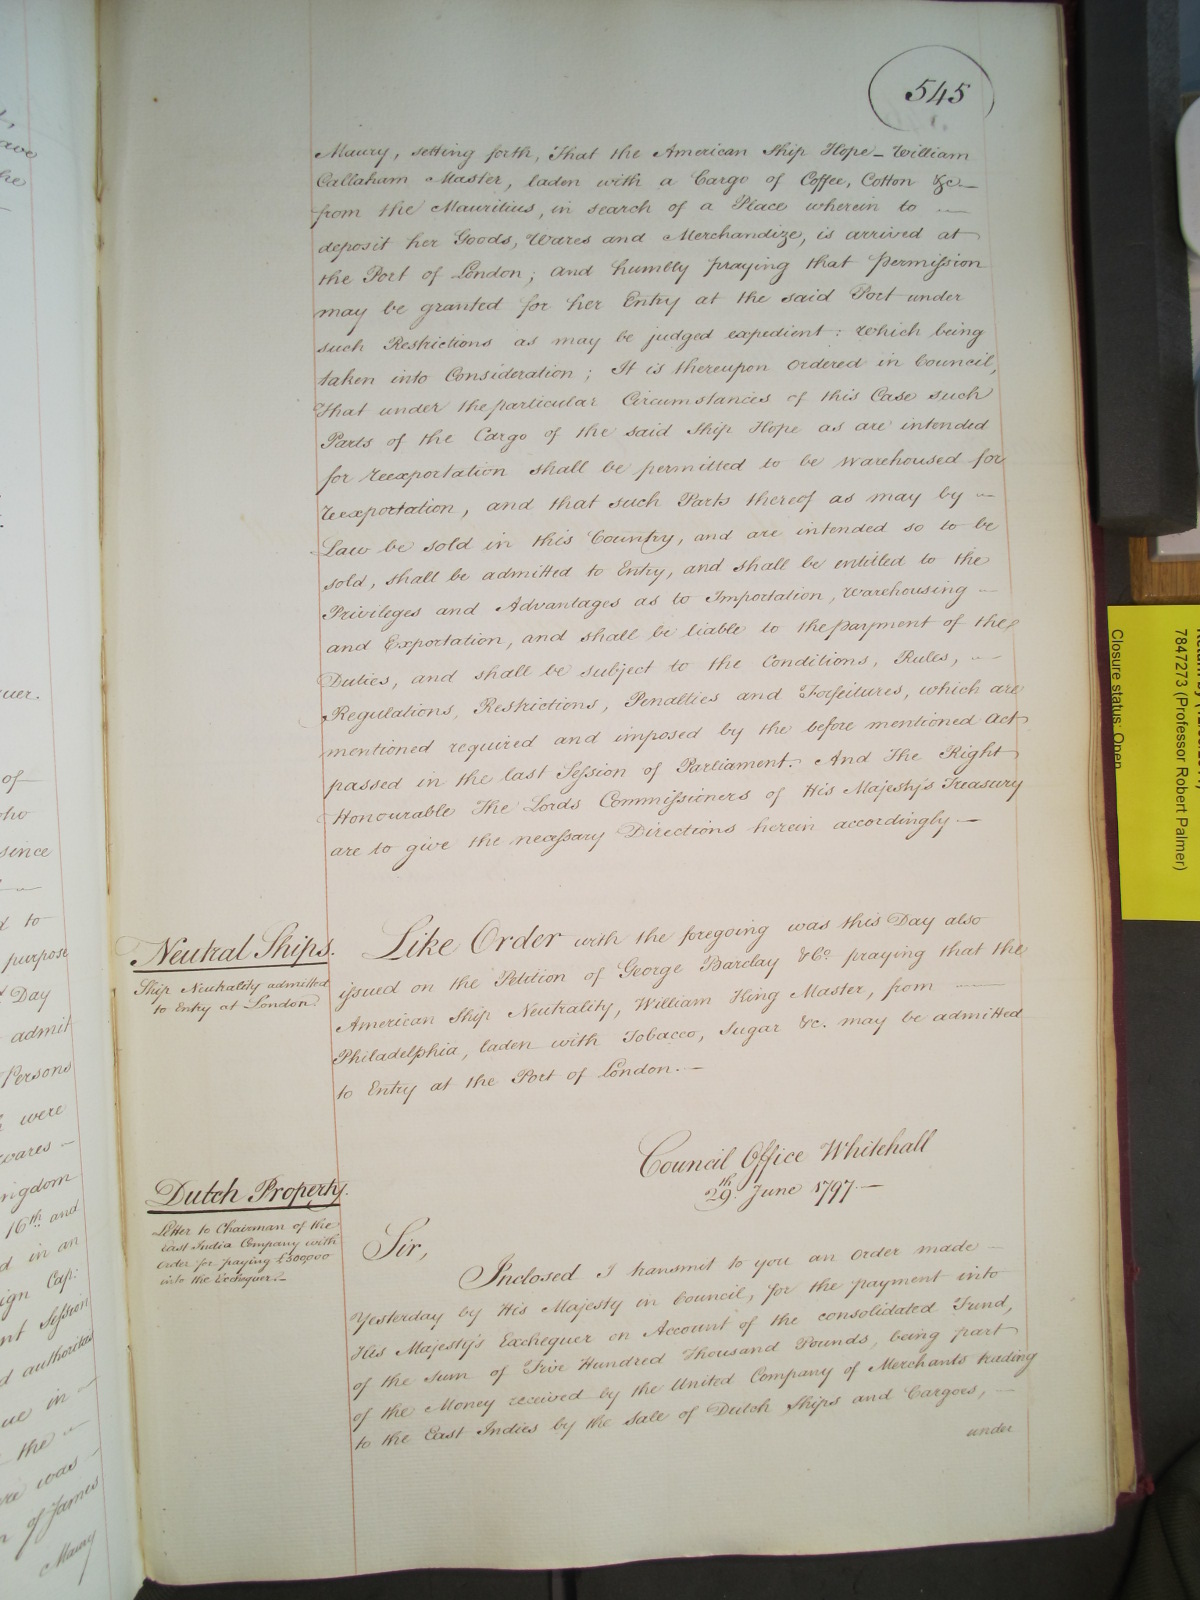 545
Maury, setting forth, That the American Ship Hope – William
Callaham Master, laden with a Cargo of Coffee, Cotton &c. –
from the Mauritius, in search of a Place wherein to –
deposit her Goods, Wares and Merchandize, is arrived at
the Port of London; and humbly praying that permission
may be granted for her Entry at the said Port under
such Restrictions as may be judged expedient: Which being
taken into Consideration; It is thereupon ordered in Council,
That under the particular Circumstances of this Case such
Parts of the Cargo of the said Ship Hope as are intended
for reexportation shall be permitted to be warehoused for
reexportation, and that such Parts thereof as may by –
Law be sold in this Country, and are intended so to be
sold, shall be admitted to Entry, and shall be entitled to the
Privileges and Advantages as to Importation, warehousing –
and Exportation, and shall be liable to the payment of the
Duties, and shall be subject to the Conditions, Rules, –
Regulations, Restrictions, Penalties and Forfeitures, which are
mentioned required and imposed by the before mentioned Act
passed in the last Session of Parliament. And The Right
Honourable The Lords Commissioners of His Majesty's Treasury
are to give the necessary Directions herein accordingly –
Neutral Ships.
Ship Neutrality admitted
to Entry at London.
Like Order with the foregoing was this Day also
issued on the Petition of George Barclay & Co. praying that the
American Ship Neutrality, William King Master, from –
Philadelphia, laden with Tobacco, Sugar &c. may be admitted
to Entry at the Port of London. –
Council Office Whitehall
29th June 1797. –
Dutch Property.
Letter to Chairman of the
East India Company with
order for paying £500,000
into the Exchequer. –
Sir,
Inclosed I transmit to you an order made –
Yesterday by His Majesty in Council, for the payment into
His Majesty's Exchequer on Account of the consolidated Fund,
of the Sum of Five Hundred Thousand Pounds, being part
of the Money received by the United Company of Merchants trading
to the East Indies by the Sale of Dutch Ships and Cargoes, –
under
ave
he
uer.
of
who
sence
to
purpose
Day
admit
Persons
were
wares –
ingdom
16th and
d in an
ign Cap:
nt Session
d authorities
ue in –
the –
was –
of James
Maury
7847273 (Professor Robert Palmer)
Closure status: Open